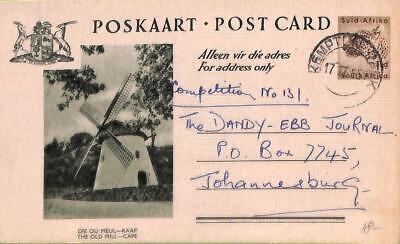 POSKAART · POST CARD
Alleen vir die adres
For address only
Suid-Afrika
South Africa
KEMPTON PARK
17
Competition No 131.
The DANDY-EBB JOURNAL
P.O. Box 7745,
Johannesburg
DIE OU MEUL—KAAP
THE OLD MILL—CAPE